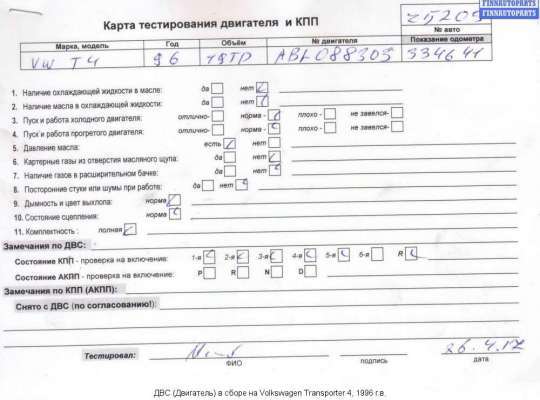 FINNAUTOPARTS
FINNAUTOPARTS
Карта тестирования двигателя и КПП
25209
№ авто
Марка, модель Год Объём № двигателя Показание одометра
VW T4 96 1.9TD ABL088305 334641
1. Наличие охлаждающей жидкости в масле: да нет
2. Наличие масла в охлаждающей жидкости: да нет
3. Пуск и работа холодного двигателя: отлично- норма - плохо - не завелся-
4. Пуск и работа прогретого двигателя: отлично- норма - плохо - не завелся-
5. Давление масла: есть нет
6. Картерные газы из отверстия масляного щупа: да нет
7. Наличие газов в расширительном бачке: да нет
8. Посторонние стуки или шумы при работе: да нет
9. Дымность и цвет выхлопа: норма
10. Состояние сцепления: норма
11. Комплектность : полная
Замечания по ДВС:
Состояние КПП - проверка на включение: 1-я 2-я 3-я 4-я 5-я 6-я R
Состояние АКПП - проверка на включение: P R N D
Замечания по КПП (АКПП):
Снято с ДВС (по согласованию!):
Тестировал: 26.4.17
ФИО подпись дата
ДВС (Двигатель) в сборе на Volkswagen Transporter 4, 1996 г.в.